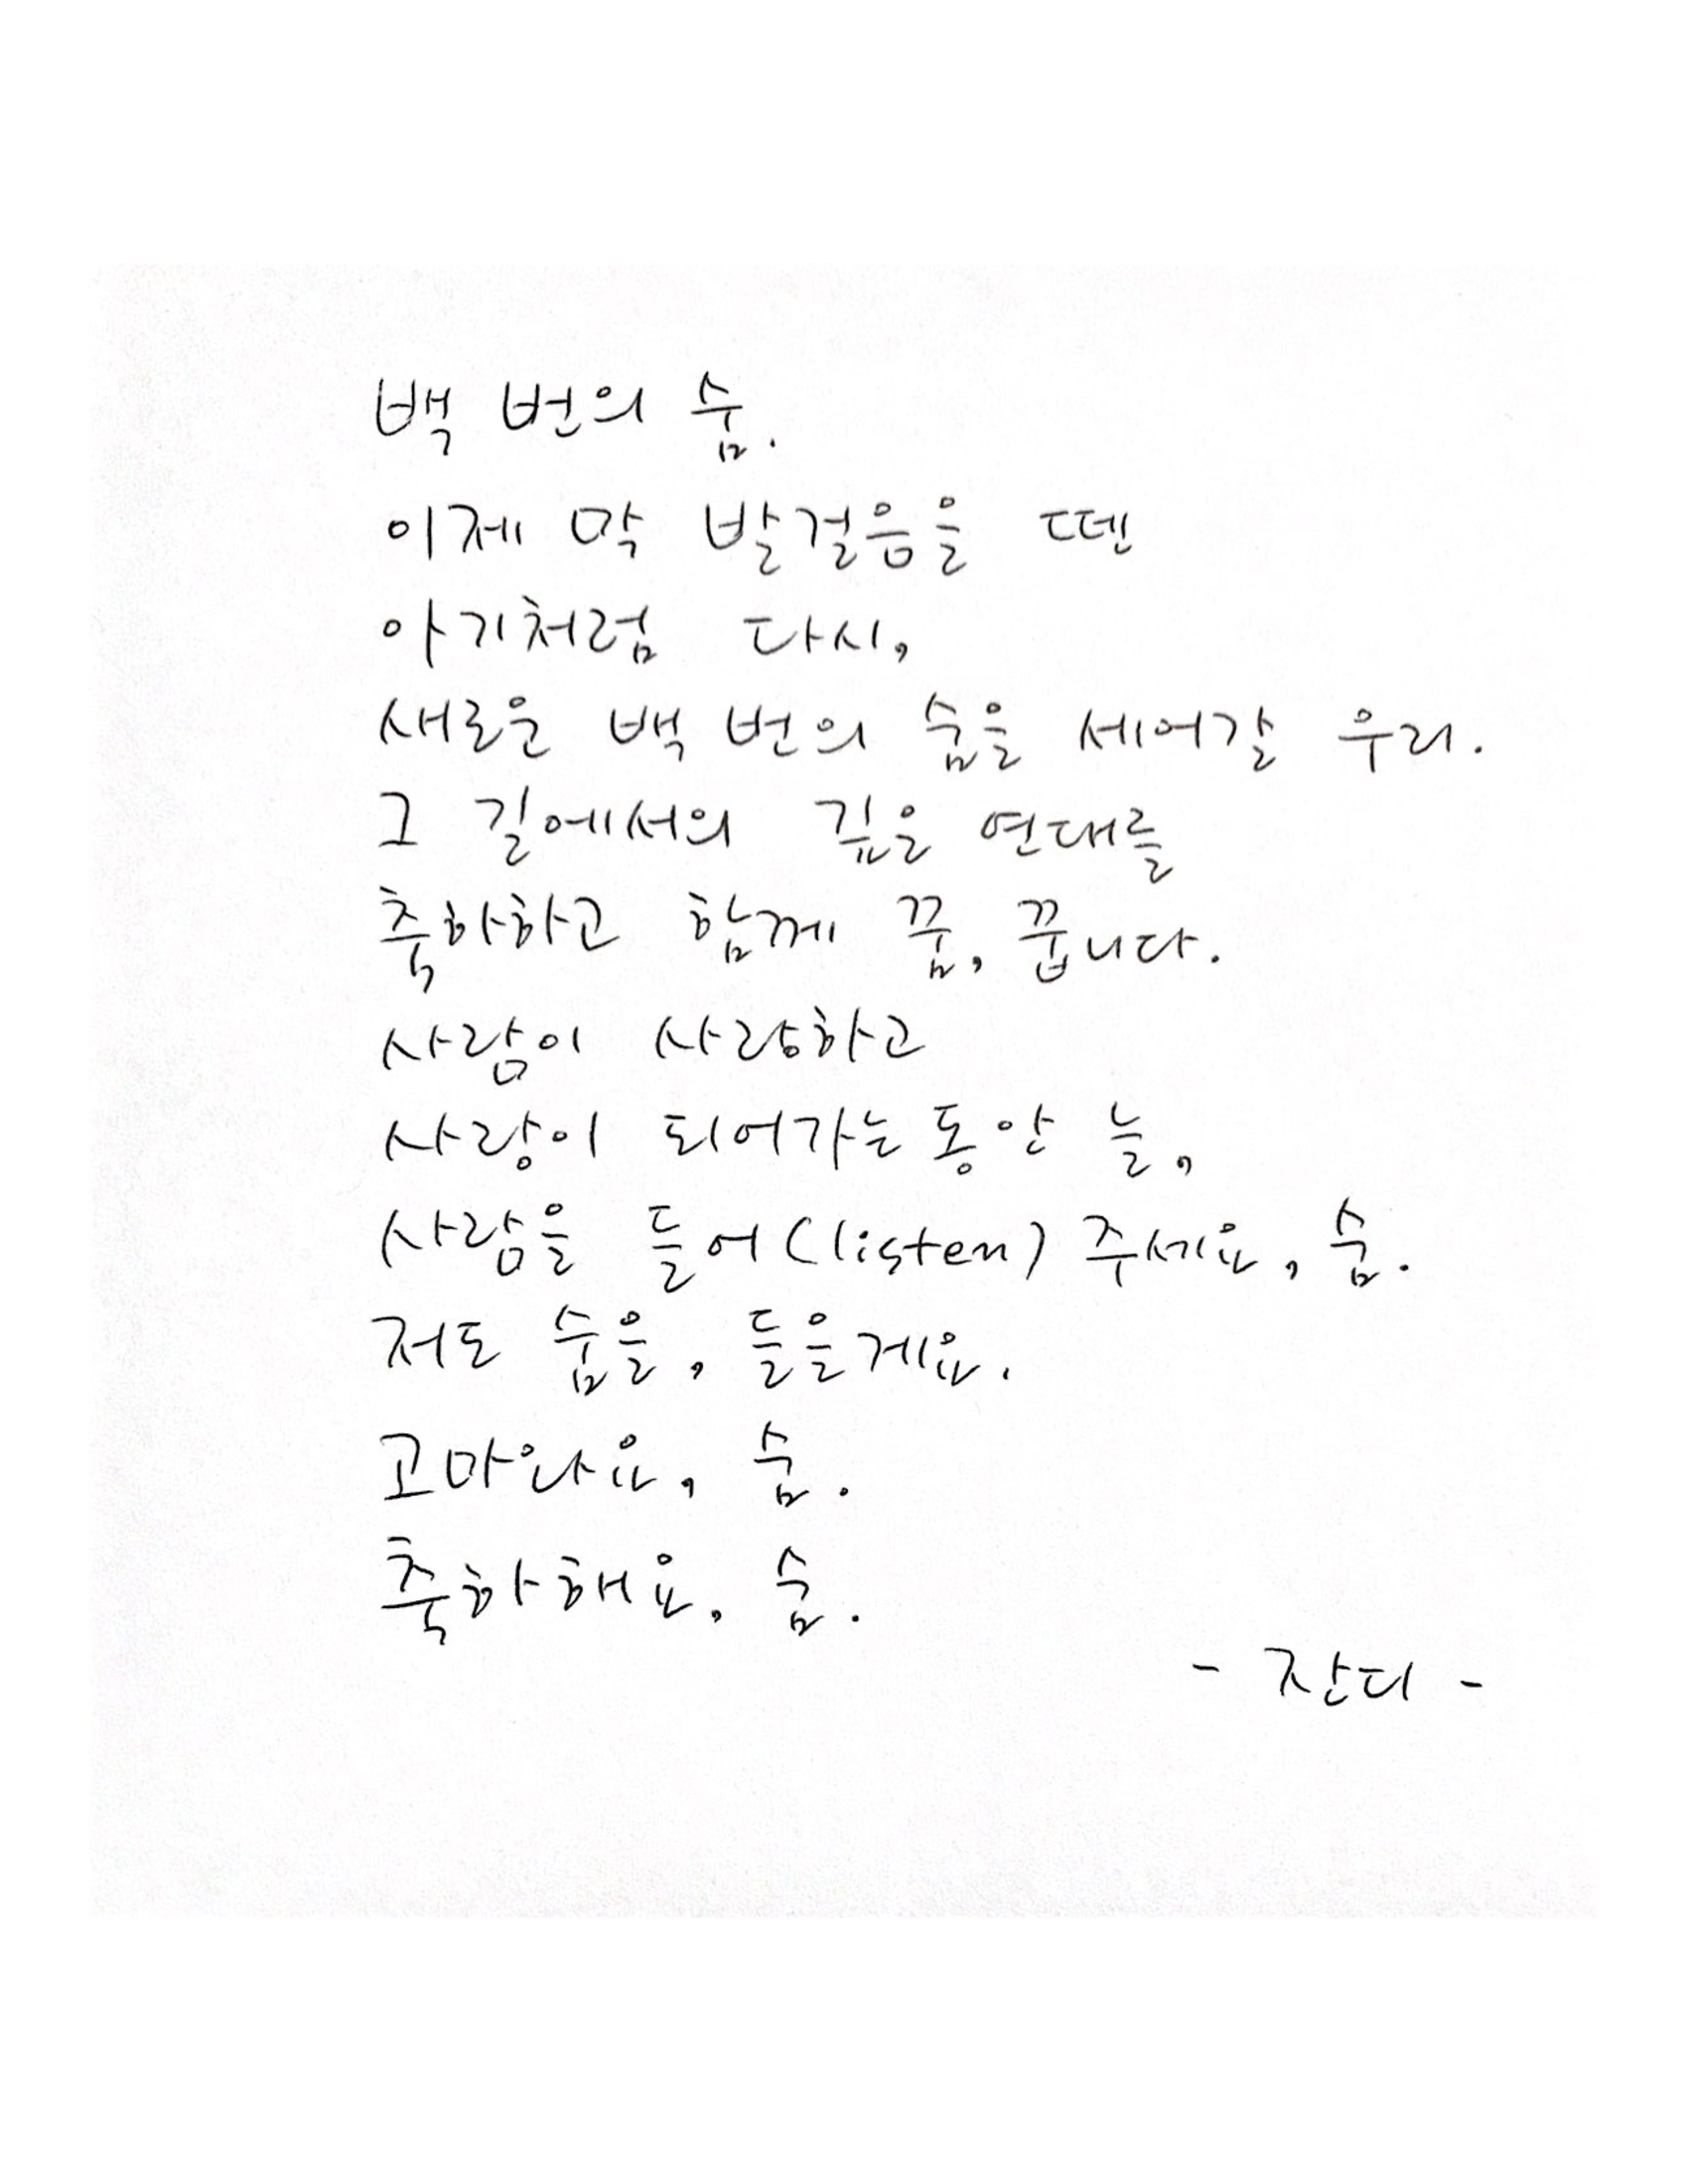 백 번의 숨.
이제 막 발걸음을 뗀
아기처럼 다시,
새로운 백 번의 숨을 세어갈 우리.
그 길에서의 깊은 연대를
축하하고 함께 꿈, 꿉니다.
사람이 사랑하고
사랑이 되어가는 동안 늘,
사람을 들어(listen) 주세요, 숨.
저도 숨을, 들을게요.
고마와요, 숨.
축하해요, 숨.
- 잔디 -